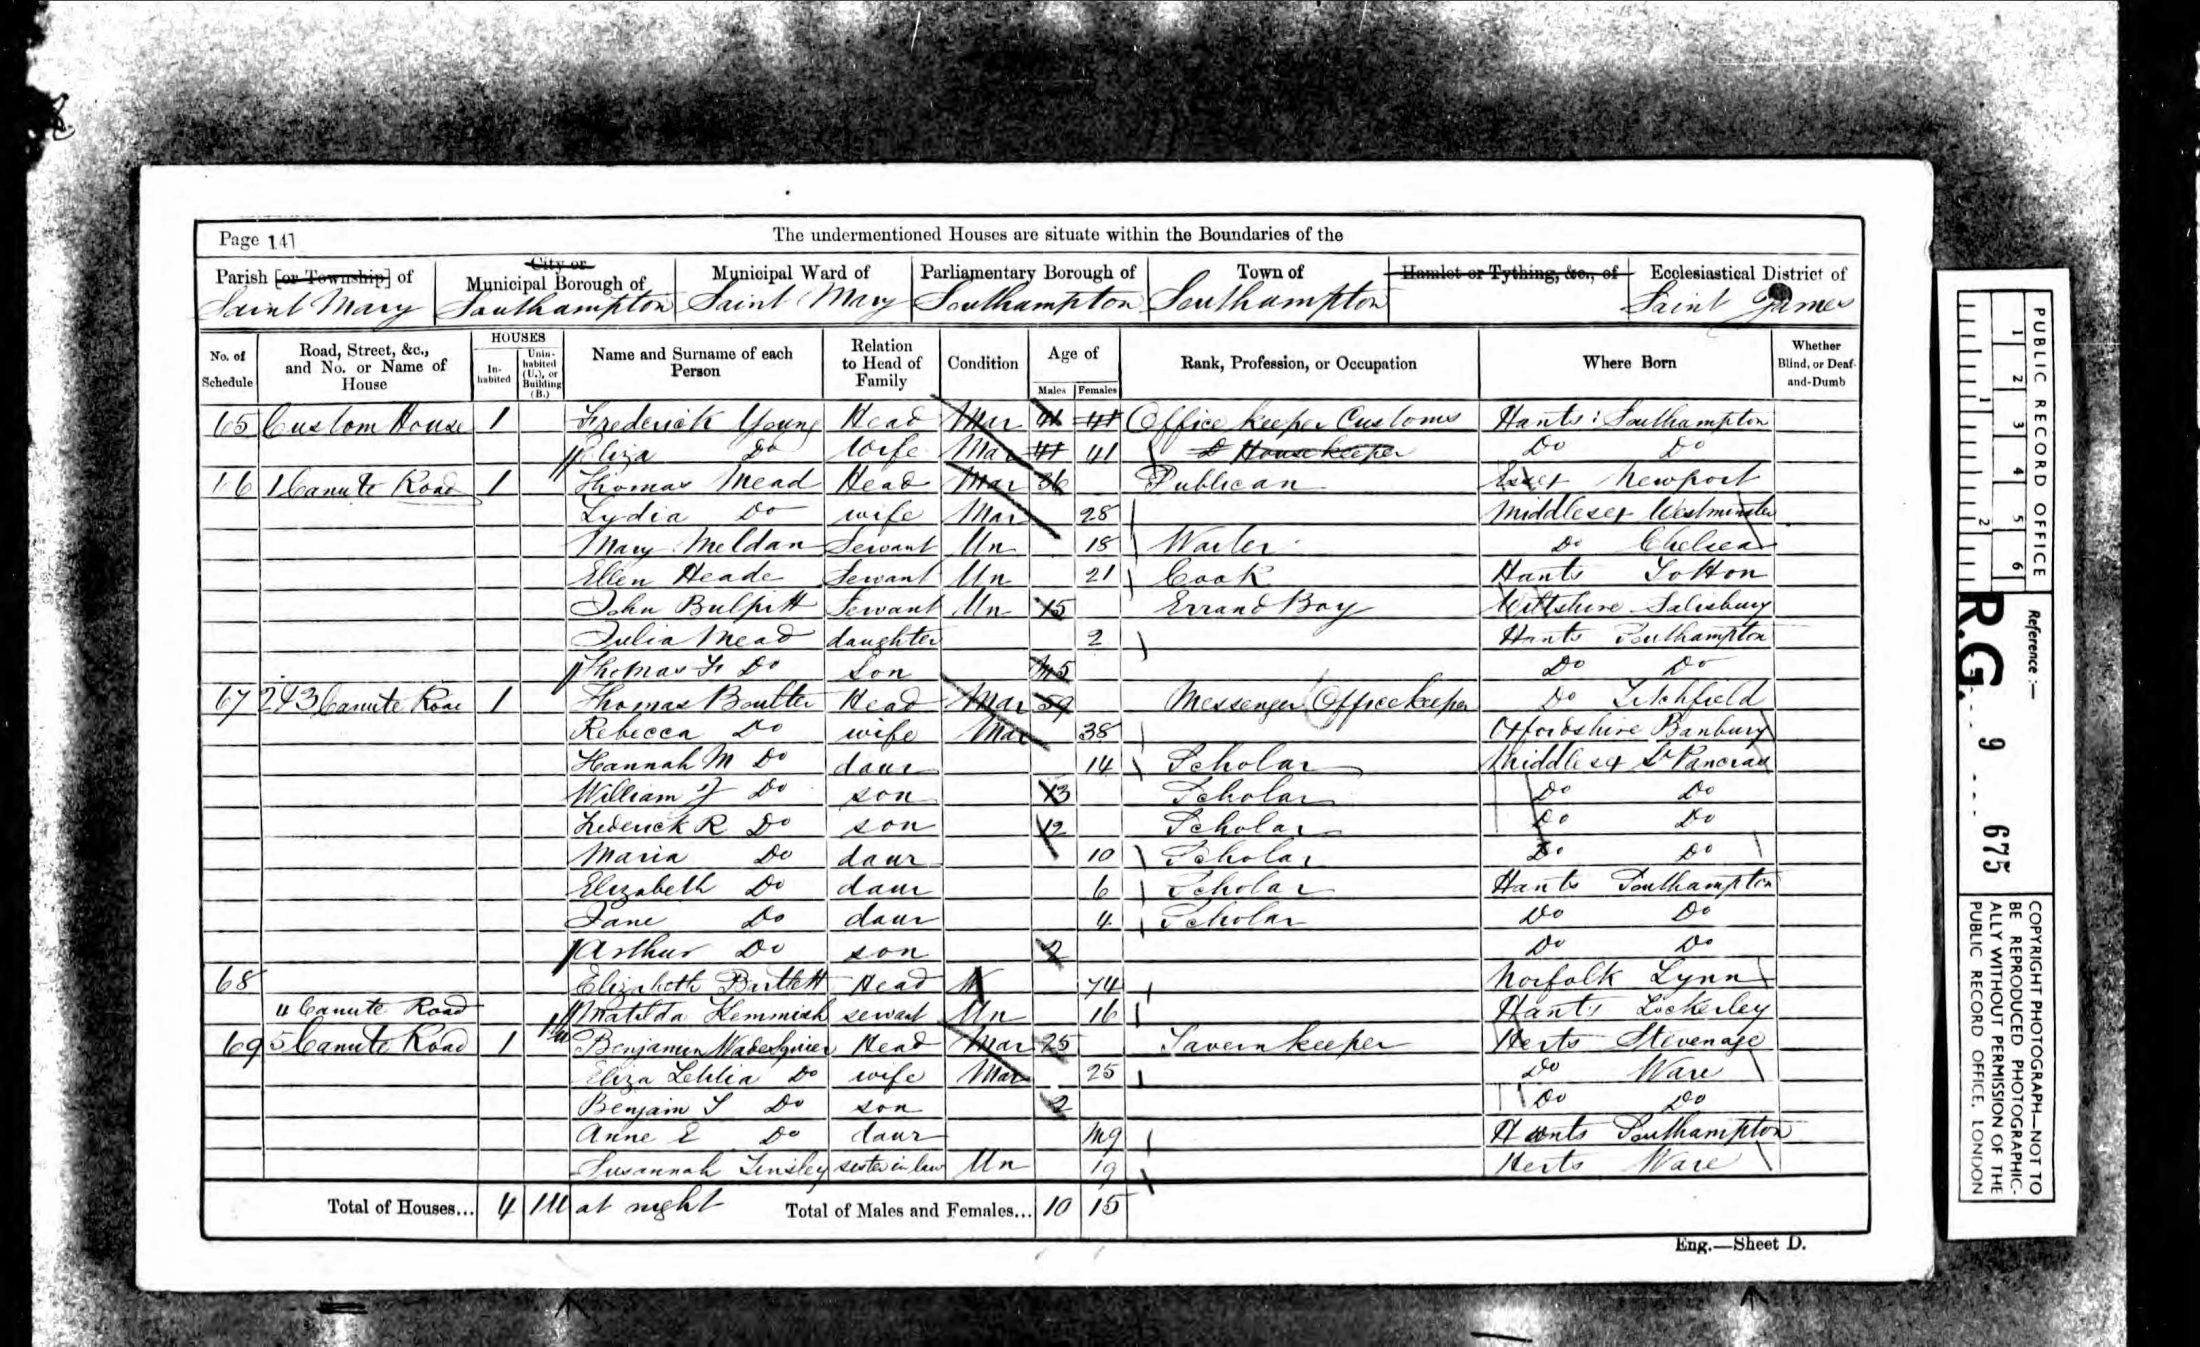 Page 141
The undermentioned Houses are situate within the Boundaries of the
Parish [or Township] of
City or Municipal Borough of
Municipal Ward of
Parliamentary Borough of
Town of
Hamlet or Tything, &c., of
Ecclesiastical District of
Saint Mary Southampton Saint Mary Southampton Southampton Saint James
No. of Schedule
Road, Street, &c., and No. or Name of House
HOUSES
In-habited
Unin-habited (U.), or Building (B.)
Name and Surname of each Person
Relation to Head of Family
Condition
Age of
Males Females
Rank, Profession, or Occupation
Where Born
Whether Blind, or Deaf-and-Dumb
65 Custom House 1 Frederick Young Head Mar 41 41 Office keeper Customs Hants: Southampton
Eliza Do Wife Mar 41 41 Housekeeper Do Do
16 1 Canute Road 1 Thomas Mead Head Mar 36 Publican Essex Newport
Lydia Do wife Mar 28 Middlesex Westminster
Mary Meldan Servant Un 18 Waiter Do Chelsea
Ellen Heade Servant Un 21 Cook Hants Totton
John Bulpitt Servant Un 15 Errand Boy Wiltshire Salisbury
Julia Mead daughter 2 Hants Southampton
Thomas F Do Son Do Do
67 2 & 3 Canute Road 1 Thomas Boulter Head Mar 59 Messenger Office keeper Do Titchfield
Rebecca Do wife Mar 38 Oxfordshire Banbury
Hannah M Do daur 14 Scholar Middlesex St Pancras
William J Do son 13 Scholar Do Do
Frederick R Do son 12 Scholar Do Do
Maria Do daur 10 Scholar Do Do
Elizabeth Do daur 6 Scholar Hants Southampton
Jane Do daur 4 Scholar Do Do
Arthur Do son 2 Do Do
68 Elizabeth Bartlett Head W 74 Norfolk Lynn
4 Canute Road Matilda Kemmish servant Un 16 Hants Lockerley
69 5 Canute Road 1 Benjamin Head Mar 25 Tavern keeper Herts Stevenage
Eliza Do wife Mar 25 Do Ware
Benjam Do son 2 Do Do
Anne E Do daur m9 Hants Southampton
Susannah Tinsley sister in law Un 19 Herts Ware
Total of Houses... 4 at night Total of Males and Females... 10 15
Eng.—Sheet D.
PUBLIC RECORD OFFICE
1 2 3 4 5 6
1 2
Reference:—
R.G. 9 675
COPYRIGHT PHOTOGRAPH—NOT TO
BE REPRODUCED PHOTOGRAPHIC-
ALLY WITHOUT PERMISSION OF THE
PUBLIC RECORD OFFICE, LONDON